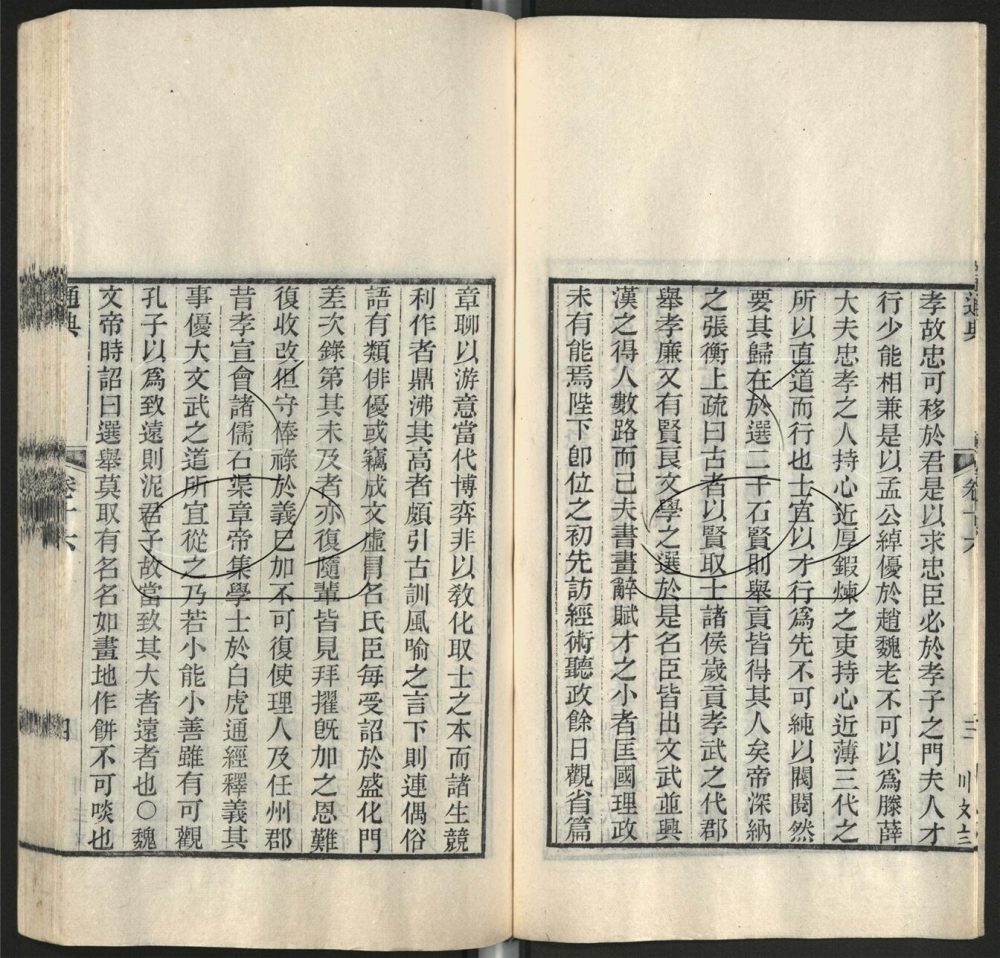 通典
卷十六
三
孝故忠可移於君是以求忠臣必於孝子之門夫人才
行少能相兼是以孟公綽優於趙魏老不可以爲滕薛
大夫忠孝之人持心近厚鍜煉之吏持心近薄三代之
所以直道而行也士宜以才行爲先不可純以閥閱然
要其歸在於選二千石賢則舉貢皆得其人矣帝深納
之張衡上疏曰古者以賢取士諸侯歲貢孝武之代郡
舉孝廉又有賢良文學之選於是名臣皆出文武並興
漢之得人數路而已夫書畫辭賦才之小者匡國理政
未有能焉陛下卽位之初先訪經術聽政餘日觀省篇
章聊以游意當代博弈非以敎化取士之本而諸生競
利作者鼎沸其高者頗引古訓風喻之言下則連偶俗
語有類俳優或竊成文虛冒名氏臣每受詔於盛化門
差次錄第其未及者亦復隨輩皆見拜擢旣加之恩難
復收改但守俸祿於義已加不可復使理人及任州郡
昔孝宣會諸儒石渠章帝集學士於白虎通經釋義其
事優大文武之道所宜從之乃若小能小善雖有可觀
孔子以爲致遠則泥君子故當致其大者遠者也○魏
文帝時詔曰選舉莫取有名名如畫地作餠不可啖也
通典
卷十六
四